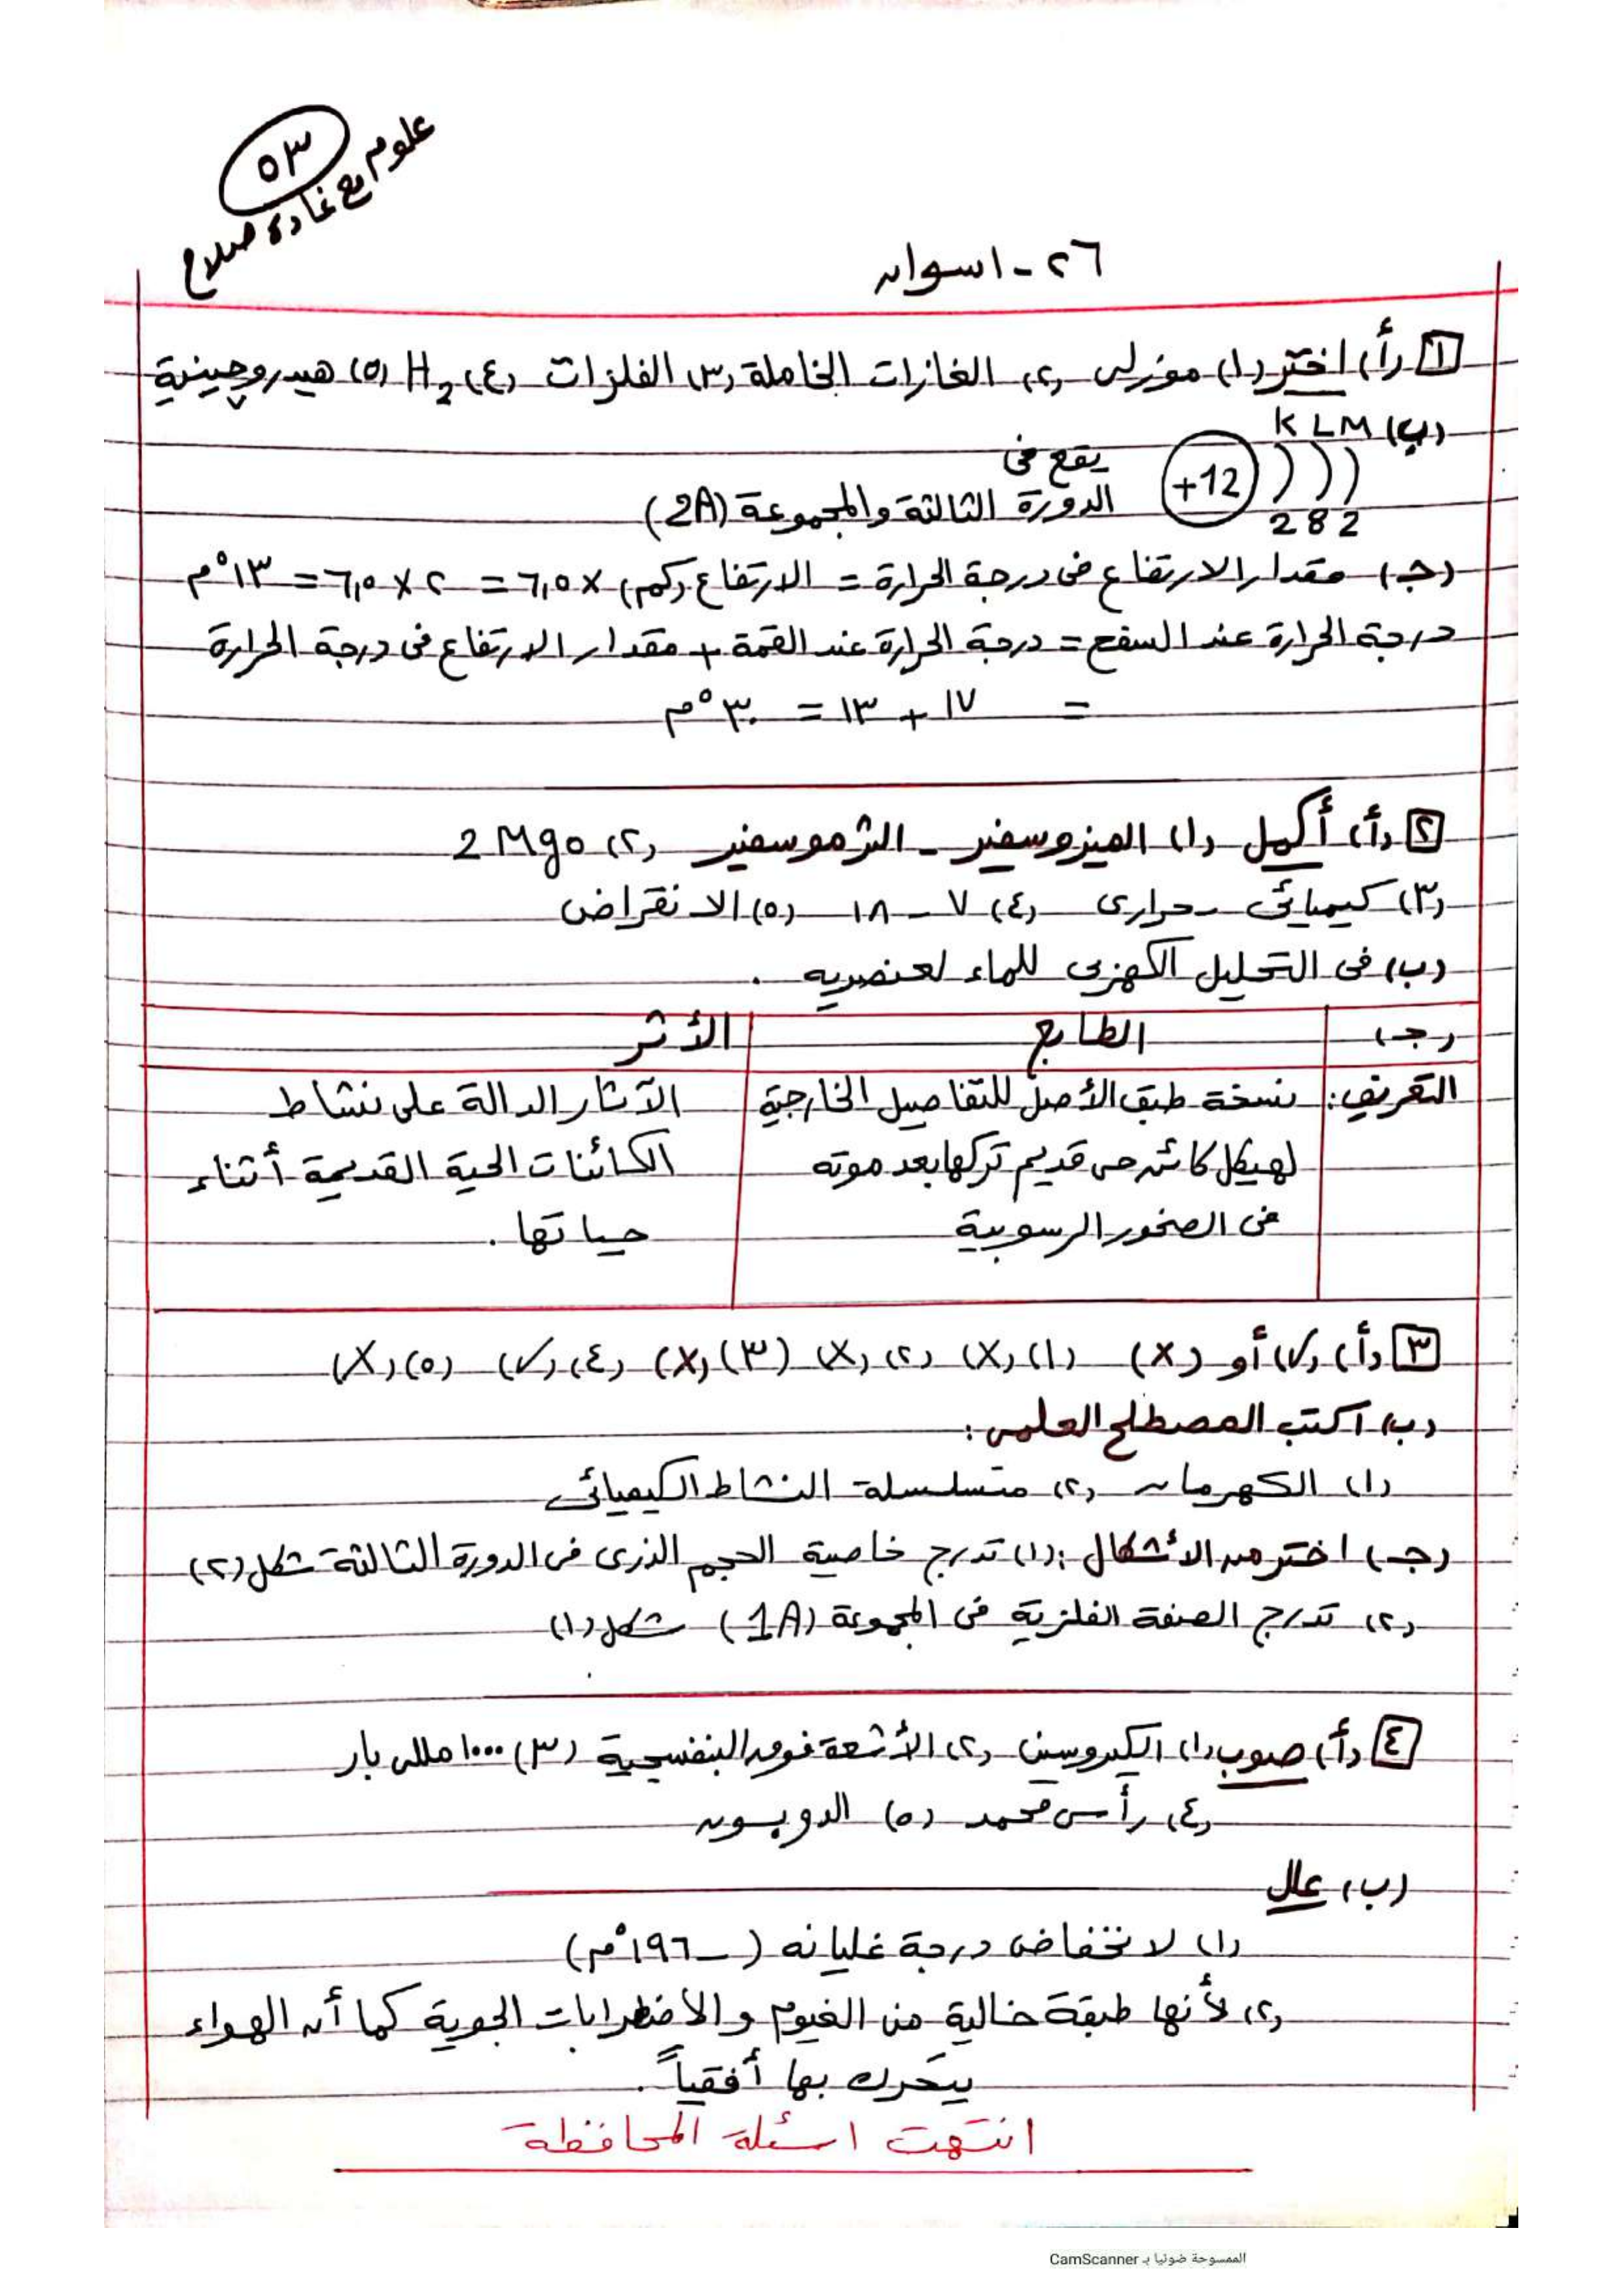 ٥٣
علوم مع غادة صلاح
٢٦ - اسوان
١ (أ) اختر (١) موزلى (٢) الغازات الخاملة (٣) الفلزات (٤) H₂ (٥) هيدروچينية
(ب) K L M
+12 ) ) ) يقع فى
2 8 2 الدورة الثالثة والمجموعة (2A)
(جـ) مقدار الارتفاع فى درجة الحرارة = الارتفاع (كم) × ٦,٥ = ٢ × ٦,٥ = ١٣°م
درجة الحرارة عند السفح = درجة الحرارة عند القمة + مقدار الارتفاع فى درجة الحرارة
= ١٧ + ١٣ = ٣٠°م
٢ (أ) أكمل (١) الميزوسفير - الثرموسفير (٢) 2Mgo
(٣) كيميائى - حرارى (٤) ٧ - ١٨ (٥) الانقراض
(ب) فى التحليل الكهربى للماء لعنصريه .
(جـ) الطابع الأثر
التعريف: نسخة طبق الأصل للتفاصيل الخارجية الآثار الدالة على نشاط
لهيكل كائن حى قديم تركها بعد موته الكائنات الحية القديمة أثناء
فى الصخور الرسوبية حياتها .
٣ (أ) (✓) أو (X) (١) (X) (٢) (X) (٣) (X) (٤) (✓) (٥) (X)
(ب) اكتب المصطلح العلمى :
(١) الكهرمان (٢) متسلسلة النشاط الكيميائى
(جـ) اختر من الأشكال : (١) تدرج خاصية الحجم الذرى فى الدورة الثالثة شكل (٢)
(٢) تدرج الصفة الفلزية فى المجموعة (1A) شكل (١)
٤ (أ) صوب (١) الكيروسين (٢) الأشعة فوق البنفسجية (٣) ١٠٠٠ مللى بار
(٤) رأس محمد (٥) الدوبسون
(ب) علل
(١) لانخفاض درجة غليانه (-١٩٦°م)
(٢) لأنها طبقة خالية من الغيوم والاضطرابات الجوية كما أن الهواء
يتحرك بها أفقياً .
انتهت اسئلة المحافظة
الممسوحة ضوئيا بـ CamScanner